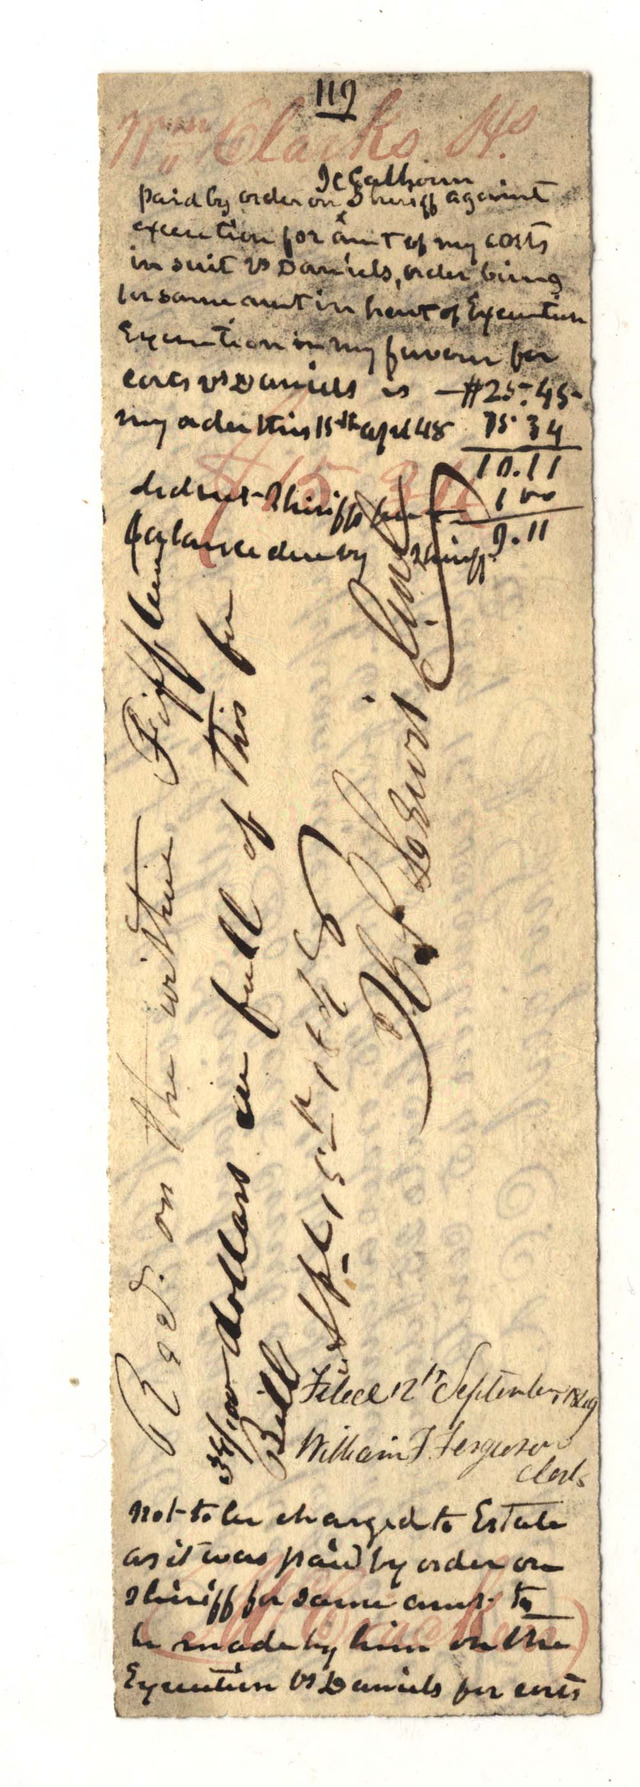 119
Wm Clarks Hs
J C Calhoun
paid by order on Sheriff against
execution for amt of my costs
in suit vs Daniels, order being
for same amt in part of Execution
Execution in my favour for
costs vs Daniels is — #25.45
my order this 15th apl 48 15.34
10.11
deduct Sheriffs fees 1 00
balance due by Sheriff 9.11
$15.34
Recd. on the within Fifteen
34/100 dollars in full of this fee
Bill Apl 15th 184
Lewis
Filed 12th September 1849
William T Ferguson
Clerk
not to be charged to Estate
as it was paid by order on
sheriff for same amt to
be made by him on the
Execution vs Daniels for costs
(McCracken)